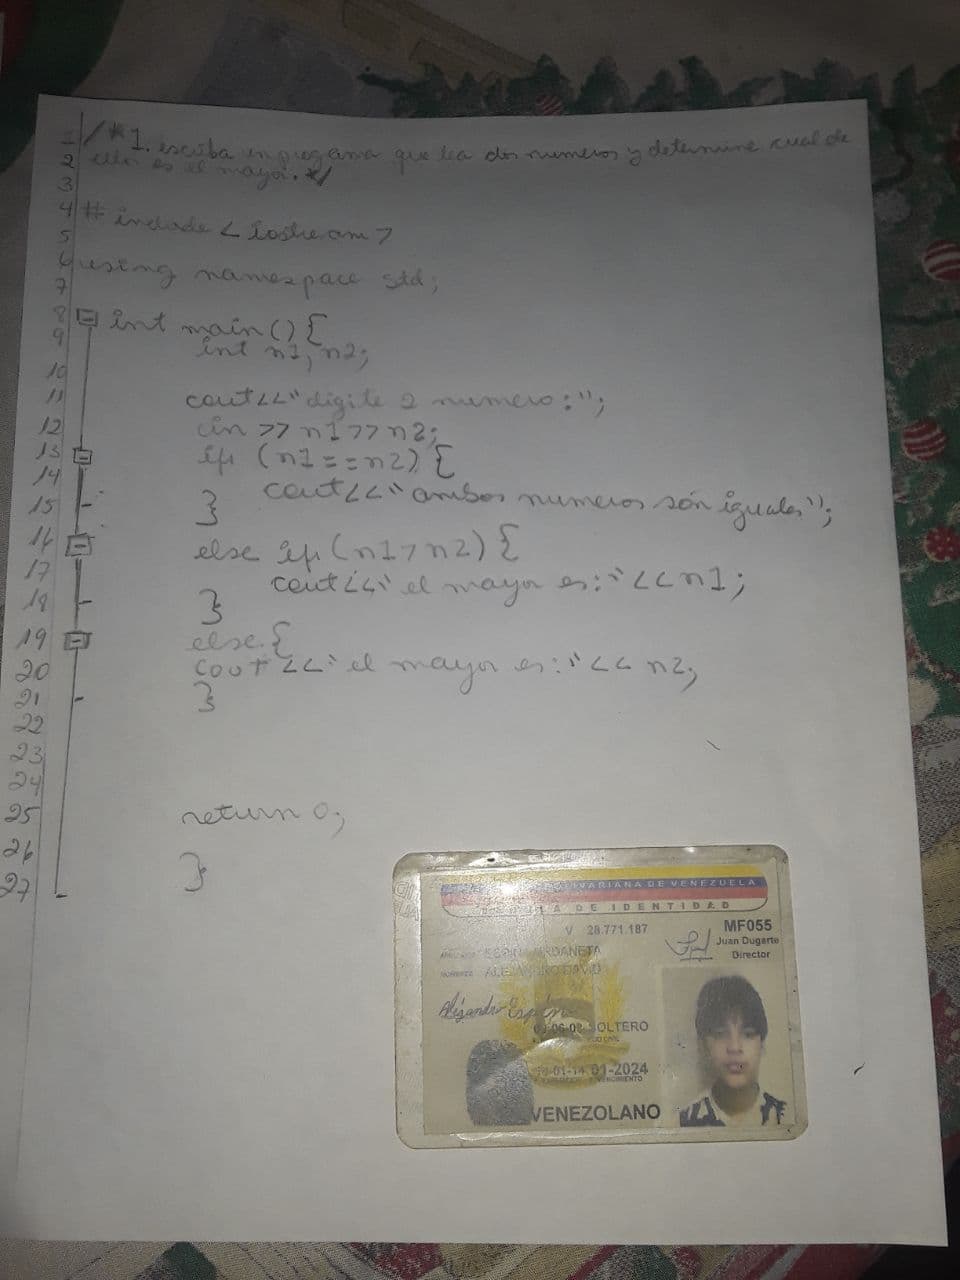 1 /* 1. escriba un programa que lea dos numeros y determine cual de
2 ellos es el mayor. */
3
4 # include < iostream >
5
6 using namespace std;
7
8 int main () {
9 int n1, n2;
10
11 cout<<"digite 2 numero:";
12 cin >> n1>>n2;
13 if (n1==n2) {
14 cout<<"ambos numeros són iguales";
15 }
16 else if (n1>n2) {
17 cout<<"el mayor es:"<<n1;
18 }
19 else {
20 cout<<"el mayor es:"<< n2;
21 }
22
23
24
25 return 0;
26
27 }
BOLIVARIANA DE VENEZUELA
CEDULA DE IDENTIDAD
V 28.771.187
MF055
Juan Dugarte
Director
URDANETA
ALEJANDRO DAVID
Alejandro
SOLTERO
01-2024
VENCIMIENTO
VENEZOLANO